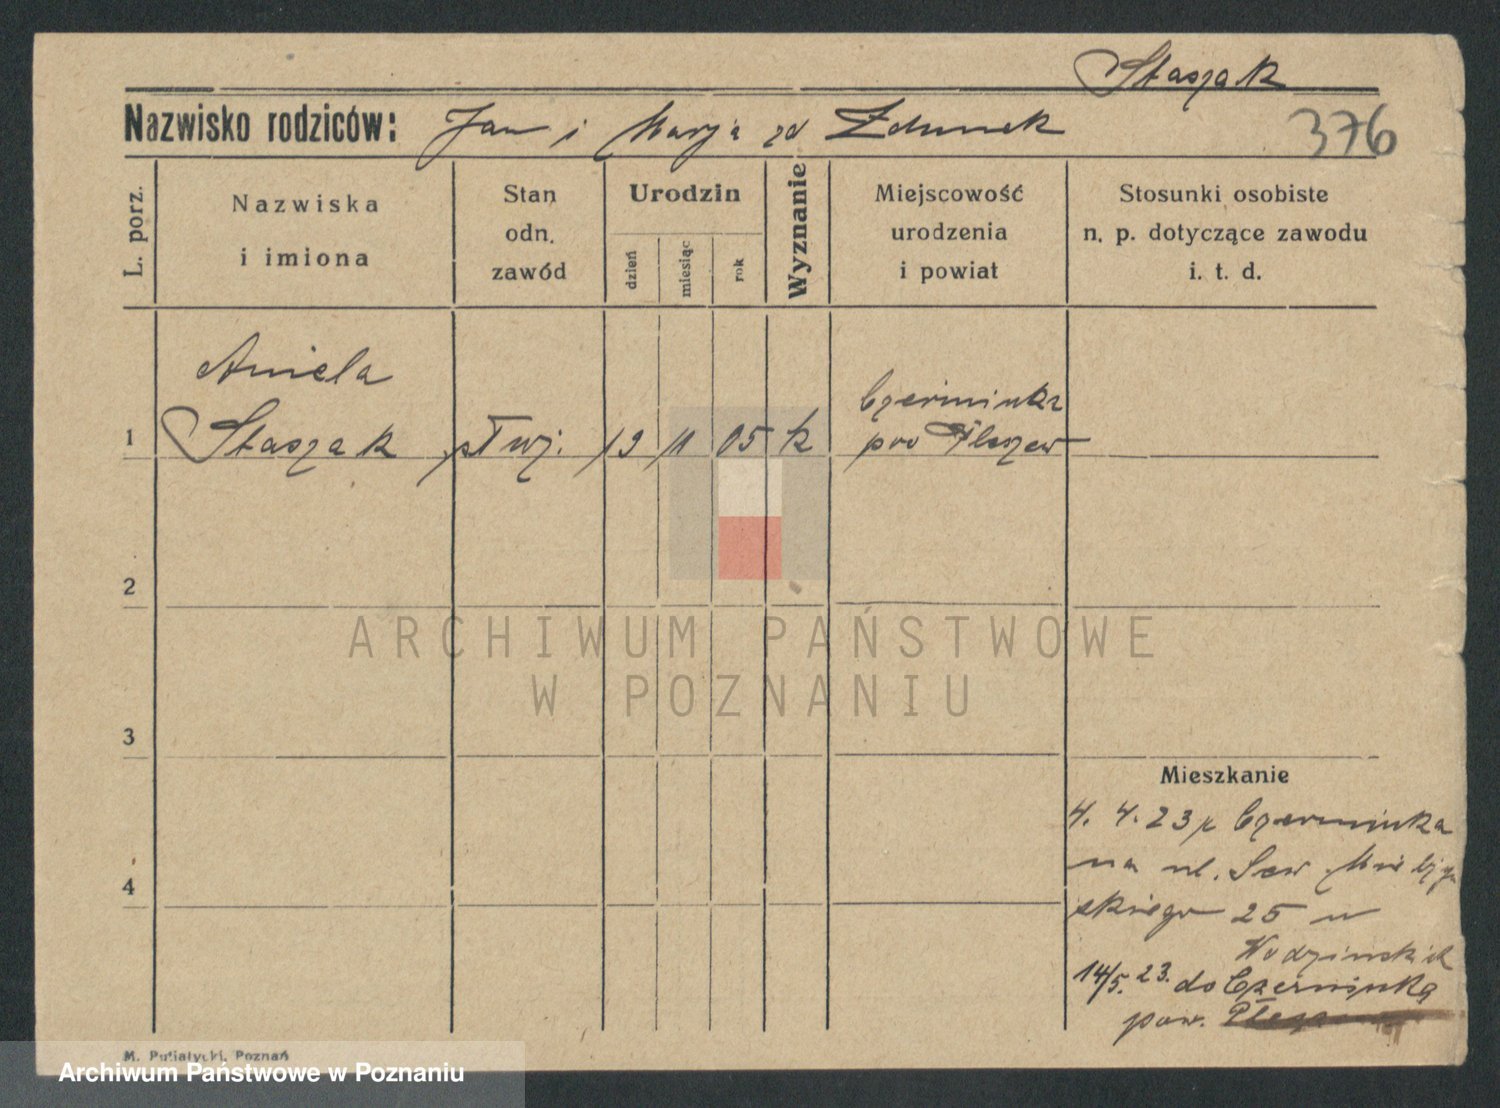 Staszak
Nazwisko rodziców: Jan i Marja zd Zdunek
376
L. porz.
Nazwiska
i imiona
Stan
odn.
zawód
Urodzin
dzień
miesiąc
rok
Wyznanie
Miejscowość
urodzenia
i powiat
Stosunki osobiste
n. p. dotyczące zawodu
i. t. d.
Aniela
1 Staszak służ. 19 11 05 k
Czerminka
pow Pleszew
2
3
4
Mieszkanie
4. 4. 23 z Czerminka
na ul. Sew. Mielżyń
skiego 25 u
Wodzińskich
14/5. 23. do Czerminka
pow. Pleszew
M. Putiatycki, Poznań
ARCHIWUM PAŃSTWOWE
W POZNANIU
Archiwum Państwowe w Poznaniu